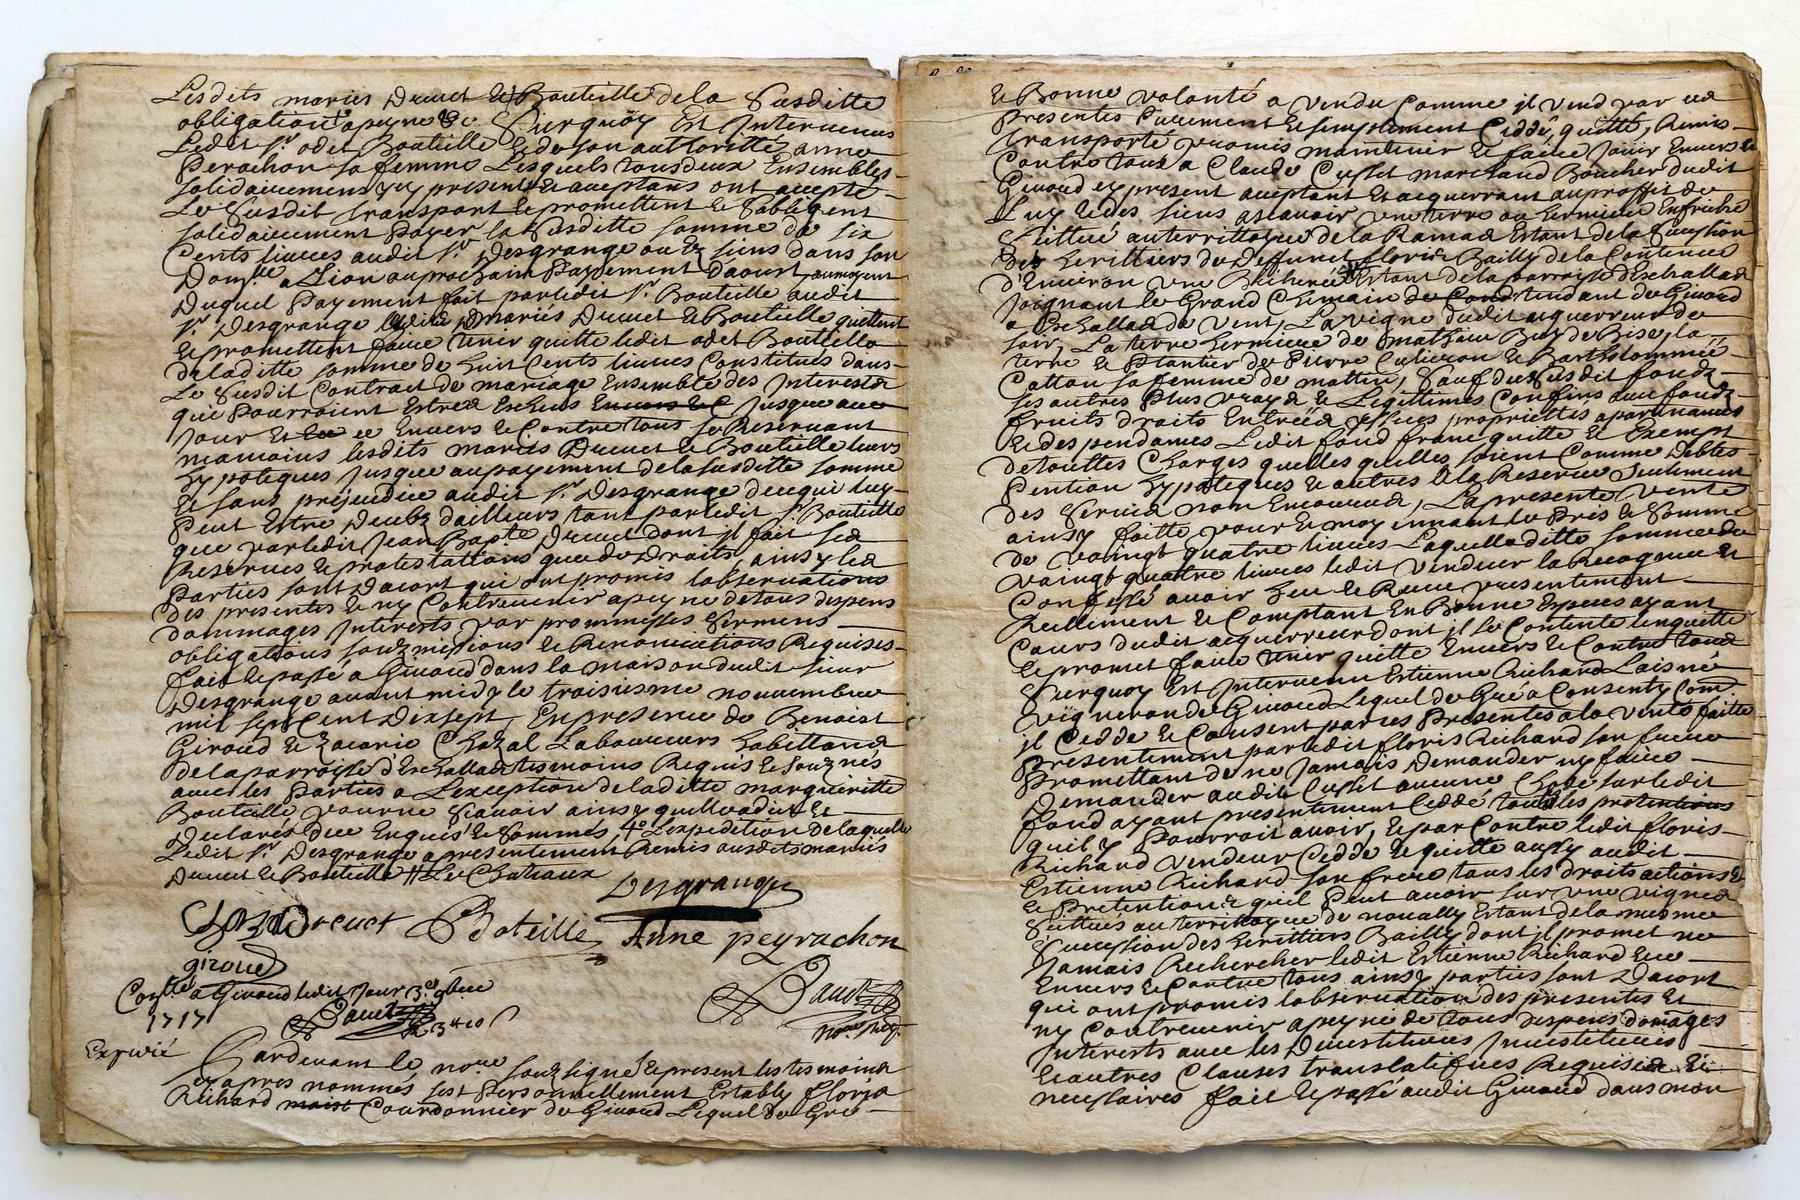 Lesdits mariés Drevet & Bouteille de la Susditte
obligation apeyne &c Surquoy Est Intervenus
Ledit Sr. odet Bouteille & de son authoritté anne
Perachon sa femme Lesquels tous deux Ensembles
solidairement icy presents & aceptans ont accepté
Le Susdit transport & promettent & Sobligent
solidairement Payer la Susditte somme de six
Cents livres audit Sr. Desgrange ou Ez siens dans son
a Lion au prochain Payement Daoust, aumoyent
Duquel Payement fait par ledit Sr. Bouteille audit
Sr. Desgrange mariés Drevet & Bouteille quittent
& promettent faire tenir quitte ledit odet Bouteille
de laditte somme de huit Cents livres Constitués dans
Le Susdit Contract de mariage Ensemble des Interests
qui Pourroient Estres Escheus Jusque a ce
Jour Et ce Envers & Contre tous se Reservant
neamoins lesdits mariés Drevet & Bouteille leurs
hypoteques Jusque au payement de la susditte somme
& sans préjudice audit Sr. Desgrange de ce qui luy
Peut Estre Deubz dailleurs tant par ledit Sr. Bouteille
que par ledit Jean Bapte. Drevet dont il fait ses
Reserves & protestations que de Droits ainsy les
Parties sont Dacort qui ont promis lobservations
des presentes & ny Contrevenir apeyne de tous despens
dommages Interests par prommesses Sermens
obligations soubzmissions & Renonciations Requises
fait & passé a Givord dans la maison dudit sieur
Desgrange avant midy le troisiesme novembre
mil sept Cent Dixsept, En presence de Benoist
Giroud & Zacarie Chazal Laboureurs habittants
de la parroisse d'Eschallas tesmoins Requis & souz nés
avec les Parties a L'exception de laditte marguéritte
Bouteille pour ne Scavoir ainsy quelle a dit &
Declarés de ce Enquis & Sommés, L'expedition de laquelle
Ledit Sr. Desgrange a presentement Remis ausdits mariés
Drevet & Bouteille
Desgrange
Drevet Boteille Anne peyrachon
giroud
a Givord ledit Jour 3e. 9bre
1717
Expédié Pardevant le nore souz signé & present les tesmoins
cy apres nommés fust Personnellement Estably floris
Richard Courdonnier de Givord Lequel de Gré
& Bonne volonté a vendu Comme il vend par ces
Presentes Purement & simplement Ceddé, quitté, Remis
transporté promis maintenir & faire Jouir Envers &
Contre tous a Claude Cusset marchand Boucher dudit
Givord icy present aceptant & acquerrant au proffit de
Luy & des siens ascavoir une terre ou hermiere En friche
Scittué au territtoire de la Ramas Estant de la Succession
des herittiers du deffunct floris Bailly de la Contenue
d'Environ une Bicherée Estant de la parroisse d'Eschallas
Joignant le Grand Chemain de tendant de Givord
a Eschallas de vent, La vigne dudit acquerreur de
soir, La terre hermiere de mathieu Buy de Bise, la
terre & Plantier de Pierre & Bartholommée
Catton sa femme de mattin, Sauf du Susdit fondz
ses autres Plus vrays & Legittimes Confins avec fondz
fruits droits Entrées issues proprietés apartenances
& des pendances Ledit fond franc quitte & Exempt
de touttes Charges quelles quelles soient Comme Debtes
Pention hypoteques & autres A la Reserve Seulement
des Servis non Encourus, La presente vente
ainsy faitte pour & moyennant le Pris & Somme
de vaingt quatre livres Laquelle ditte somme de
vaingt quatre livres ledit vendeur la Recognu &
Confessé avoir heu & Receu presentement
Reellement & Comptant En Bonne Especes ayant
Cours dudit acquerreur dont il se Contente Lenquitte
& promet faire tenir quitte Envers & Contre tous
Surquoy Est Intervenu Estienne Richard Laisné
vigneron de Givord Lequel de Gré a Consenty Comme
il Cedde & Consent par ces Presentes a la vente faitte
presentement par ledit floris Richard son frere
Promettant de ne Jamais Demander ny faire
Demander audit Cusset aucune Chose sur ledit
fond ayant presentement Ceddé tous les pretentions
quil y Pourroit avoir, & par Contre ledit floris
Richard vendeur Cedde & quitte aussy audit
Estienne Richard son frere tous les droits actions &
& Pretentions quil Peut avoir sur une vignes
Scittués au territtoire de noually Estant de la mesme
Succession des herittiers Bailly dont il promet ne
Jamais Rechercher ledit Estienne Richard Ence
Envers & Contre tous ainsy parties sont Dacort
qui ont promis lobservation des presentes Et
ny Contrevenir apeyne de tous despens domages
Interests avec les Devestitures Investitures
& autres Clauses translatifves Requises Et
necessaires fait & passé audit Givord dans mon